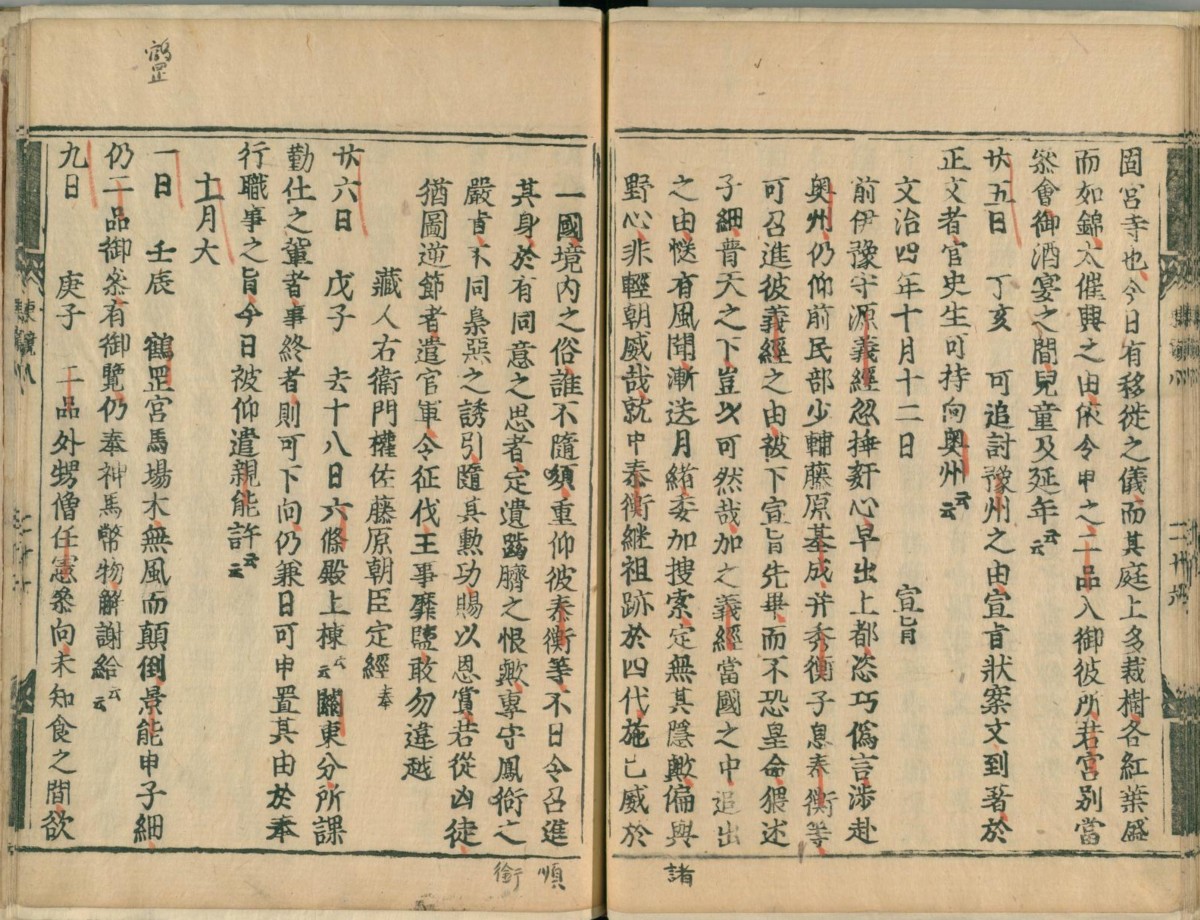 固宮寺也今日有移徙之儀而其庭上多栽樹各紅葉盛
而如錦太催興之由依令申之二品入御彼所若宮別當
叅會御酒宴之間兒童及延年云云
廿五日　丁亥　可追討豫州之由宣旨狀案文到著於
正文者官史生可持向奥州云云
文治四年十月十二日　宣旨
前伊豫守源義經忽揷奸心早出上都恣巧僞言渉赴
奥州仍仰前民部少輔藤原基成并秀衡子息泰衡等
可召進彼義經之由被下宣旨先畢而不恐皇命猥述
子細普天之下豈以可然哉加之義經當國之中追出
之由慥有風聞漸送月緒委加搜索定無其隱歟偏與
野心非輕朝威哉就中泰衡継祖跡於四代施己威於
諸
一國境内之俗誰不隨須重仰彼泰衡等不日令召進
其身於有同意之思者定遺噬臍之恨歟專守鳳銜之
嚴旨不同梟惡之誘引隨其勲功賜以恩賞若從凶徒
猶圖逆節者遣官軍令征伐王事靡盬敢勿違越
藏人右衛門權佐藤原朝臣定經奉
廿六日　戊子　去十八日六條殿上棟云云關東分所課
勤仕之輩者事終者則可下向仍兼日可申置其由於奉
行職事之旨今日被仰遣親能許云云
十一月大
一日　壬辰　鶴罡宮馬場木無風而顛倒景能申子細
仍二品御叅有御覧仍奉神馬幣物解謝給云云
九日　庚子　二品外甥僧任憲叅向未知食之間欲
順
銜